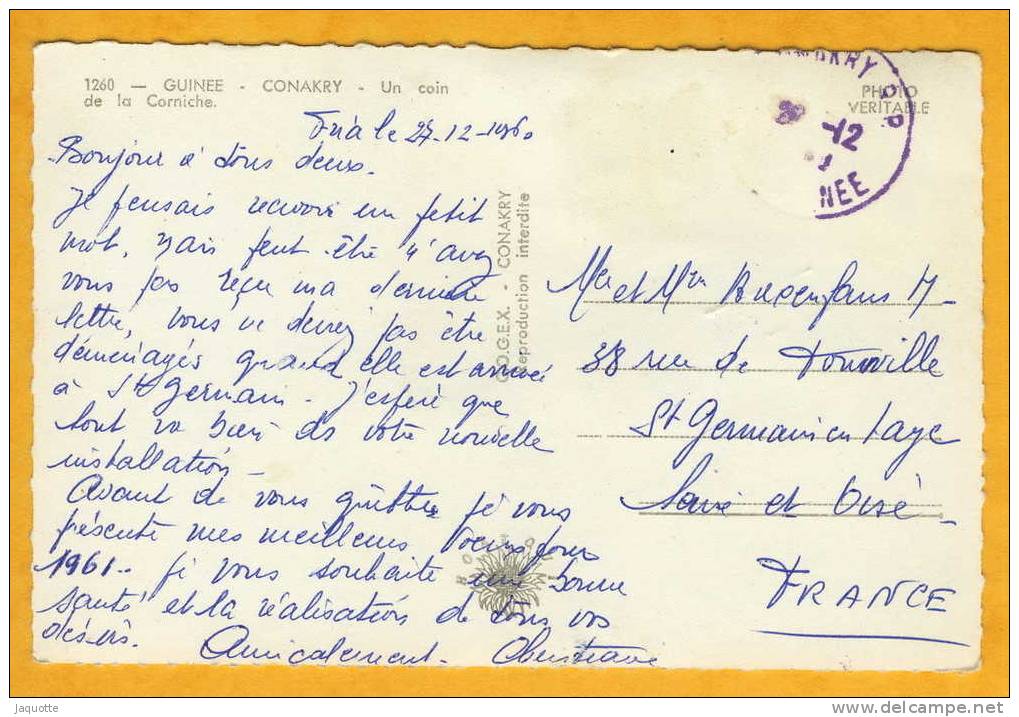 1260 — GUINEE - CONAKRY - Un coin
de la Corniche.
PHOTO
VERITABLE
-12
NEE
Fria le 27-12-1960
Bonjour à tous deux.
Je pensais recevoir un petit
mot, mais peut être n'avez
vous pas reçu ma dernière
lettre, vous ne devez pas être
déménagés quand elle est arrivée
à St Germain. J'espère que
tout va bien ds votre nouvelle
installation -
Avant de vous quitter je vous
présente mes meilleurs voeux pour
1961.. Je vous souhaite une bonne
santé et la réalisation de tous vos
désirs.
Amicalement. Christiane
C.O.G.E.X. - CONAKRY
Reproduction interdite
Mr et Mme M-
38 rue de
St Germain en Laye
Seine et Oise -
FRANCE
Jaquotte
delcampe.net